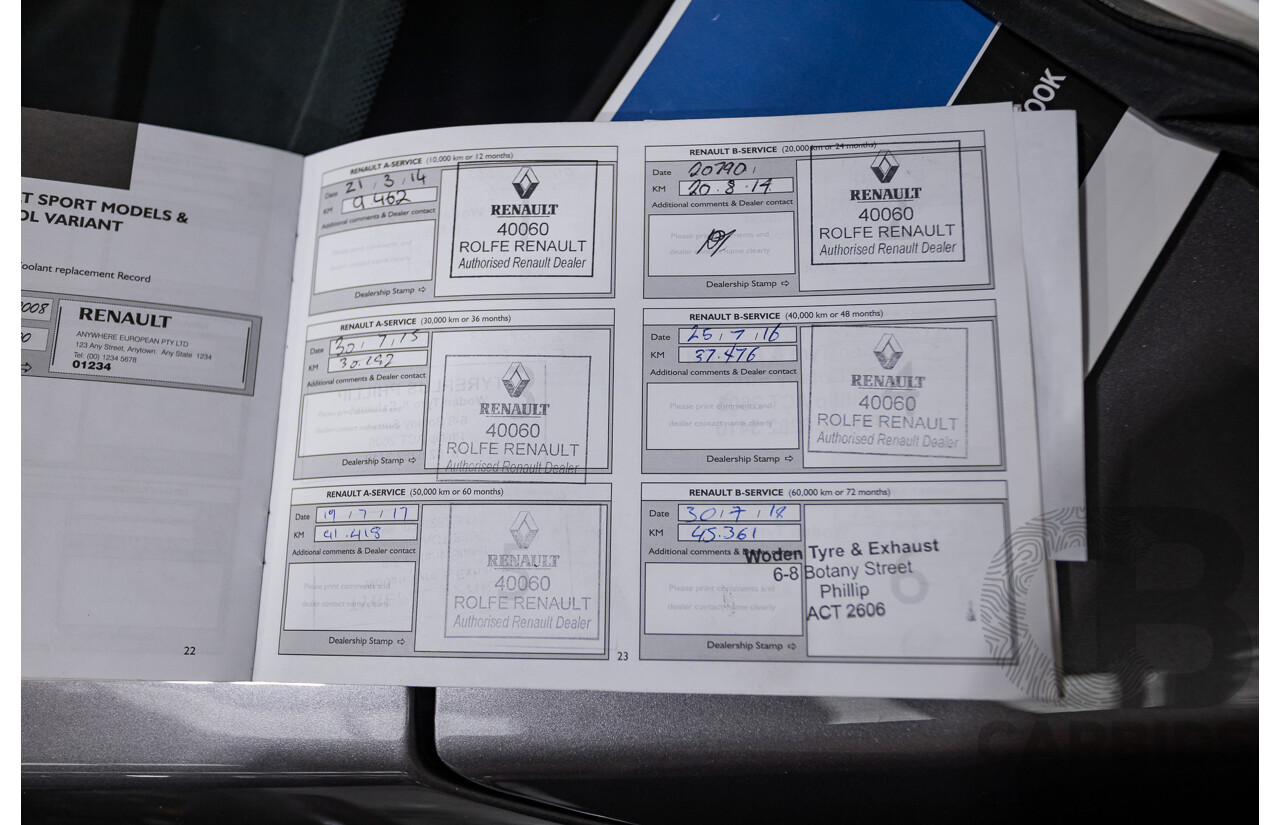 OOK
T SPORT MODELS &
OL VARIANT
oolant replacement Record
008
RENAULT
ANYWHERE EUROPEAN PTY LTD
123 Any Street, Anytown. Any State 1234
Tel: (00) 1234 5678
01234
22
RENAULT A-SERVICE (10,000 km or 12 months)
Date 21 / 3 / 14
KM 9.462
Additional comments & Dealer contact
Please print comments and
dealer contact name clearly
Dealership Stamp ⇨
RENAULT
40060
ROLFE RENAULT
Authorised Renault Dealer
RENAULT A-SERVICE (30,000 km or 36 months)
Date 30 / 7 / 15
KM 30.192
Additional comments & Dealer contact
Please print comments and
dealer contact name clearly
Dealership Stamp ⇨
RENAULT
40060
ROLFE RENAULT
Authorised Renault Dealer
RENAULT A-SERVICE (50,000 km or 60 months)
Date 19 / 7 / 17
KM 41.418
Additional comments & Dealer contact
Please print comments and
dealer contact name clearly
Dealership Stamp ⇨
RENAULT
40060
ROLFE RENAULT
Authorised Renault Dealer
23
RENAULT B-SERVICE (20,000 km or 24 months)
Date 20790 /
KM 20.8.14
Additional comments & Dealer contact
Please print comments and
dealer contact name clearly
Dealership Stamp ⇨
RENAULT
40060
ROLFE RENAULT
Authorised Renault Dealer
RENAULT B-SERVICE (40,000 km or 48 months)
Date 25 / 7 / 16
KM 37.476
Additional comments & Dealer contact
Please print comments and
dealer contact name clearly
Dealership Stamp ⇨
RENAULT
40060
ROLFE RENAULT
Authorised Renault Dealer
RENAULT B-SERVICE (60,000 km or 72 months)
Date 30 / 7 / 18
KM 45.361
Additional comments & Dealer contact
Please print comments and
dealer contact name clearly
Dealership Stamp ⇨
Woden Tyre & Exhaust
6-8 Botany Street
Phillip
ACT 2606